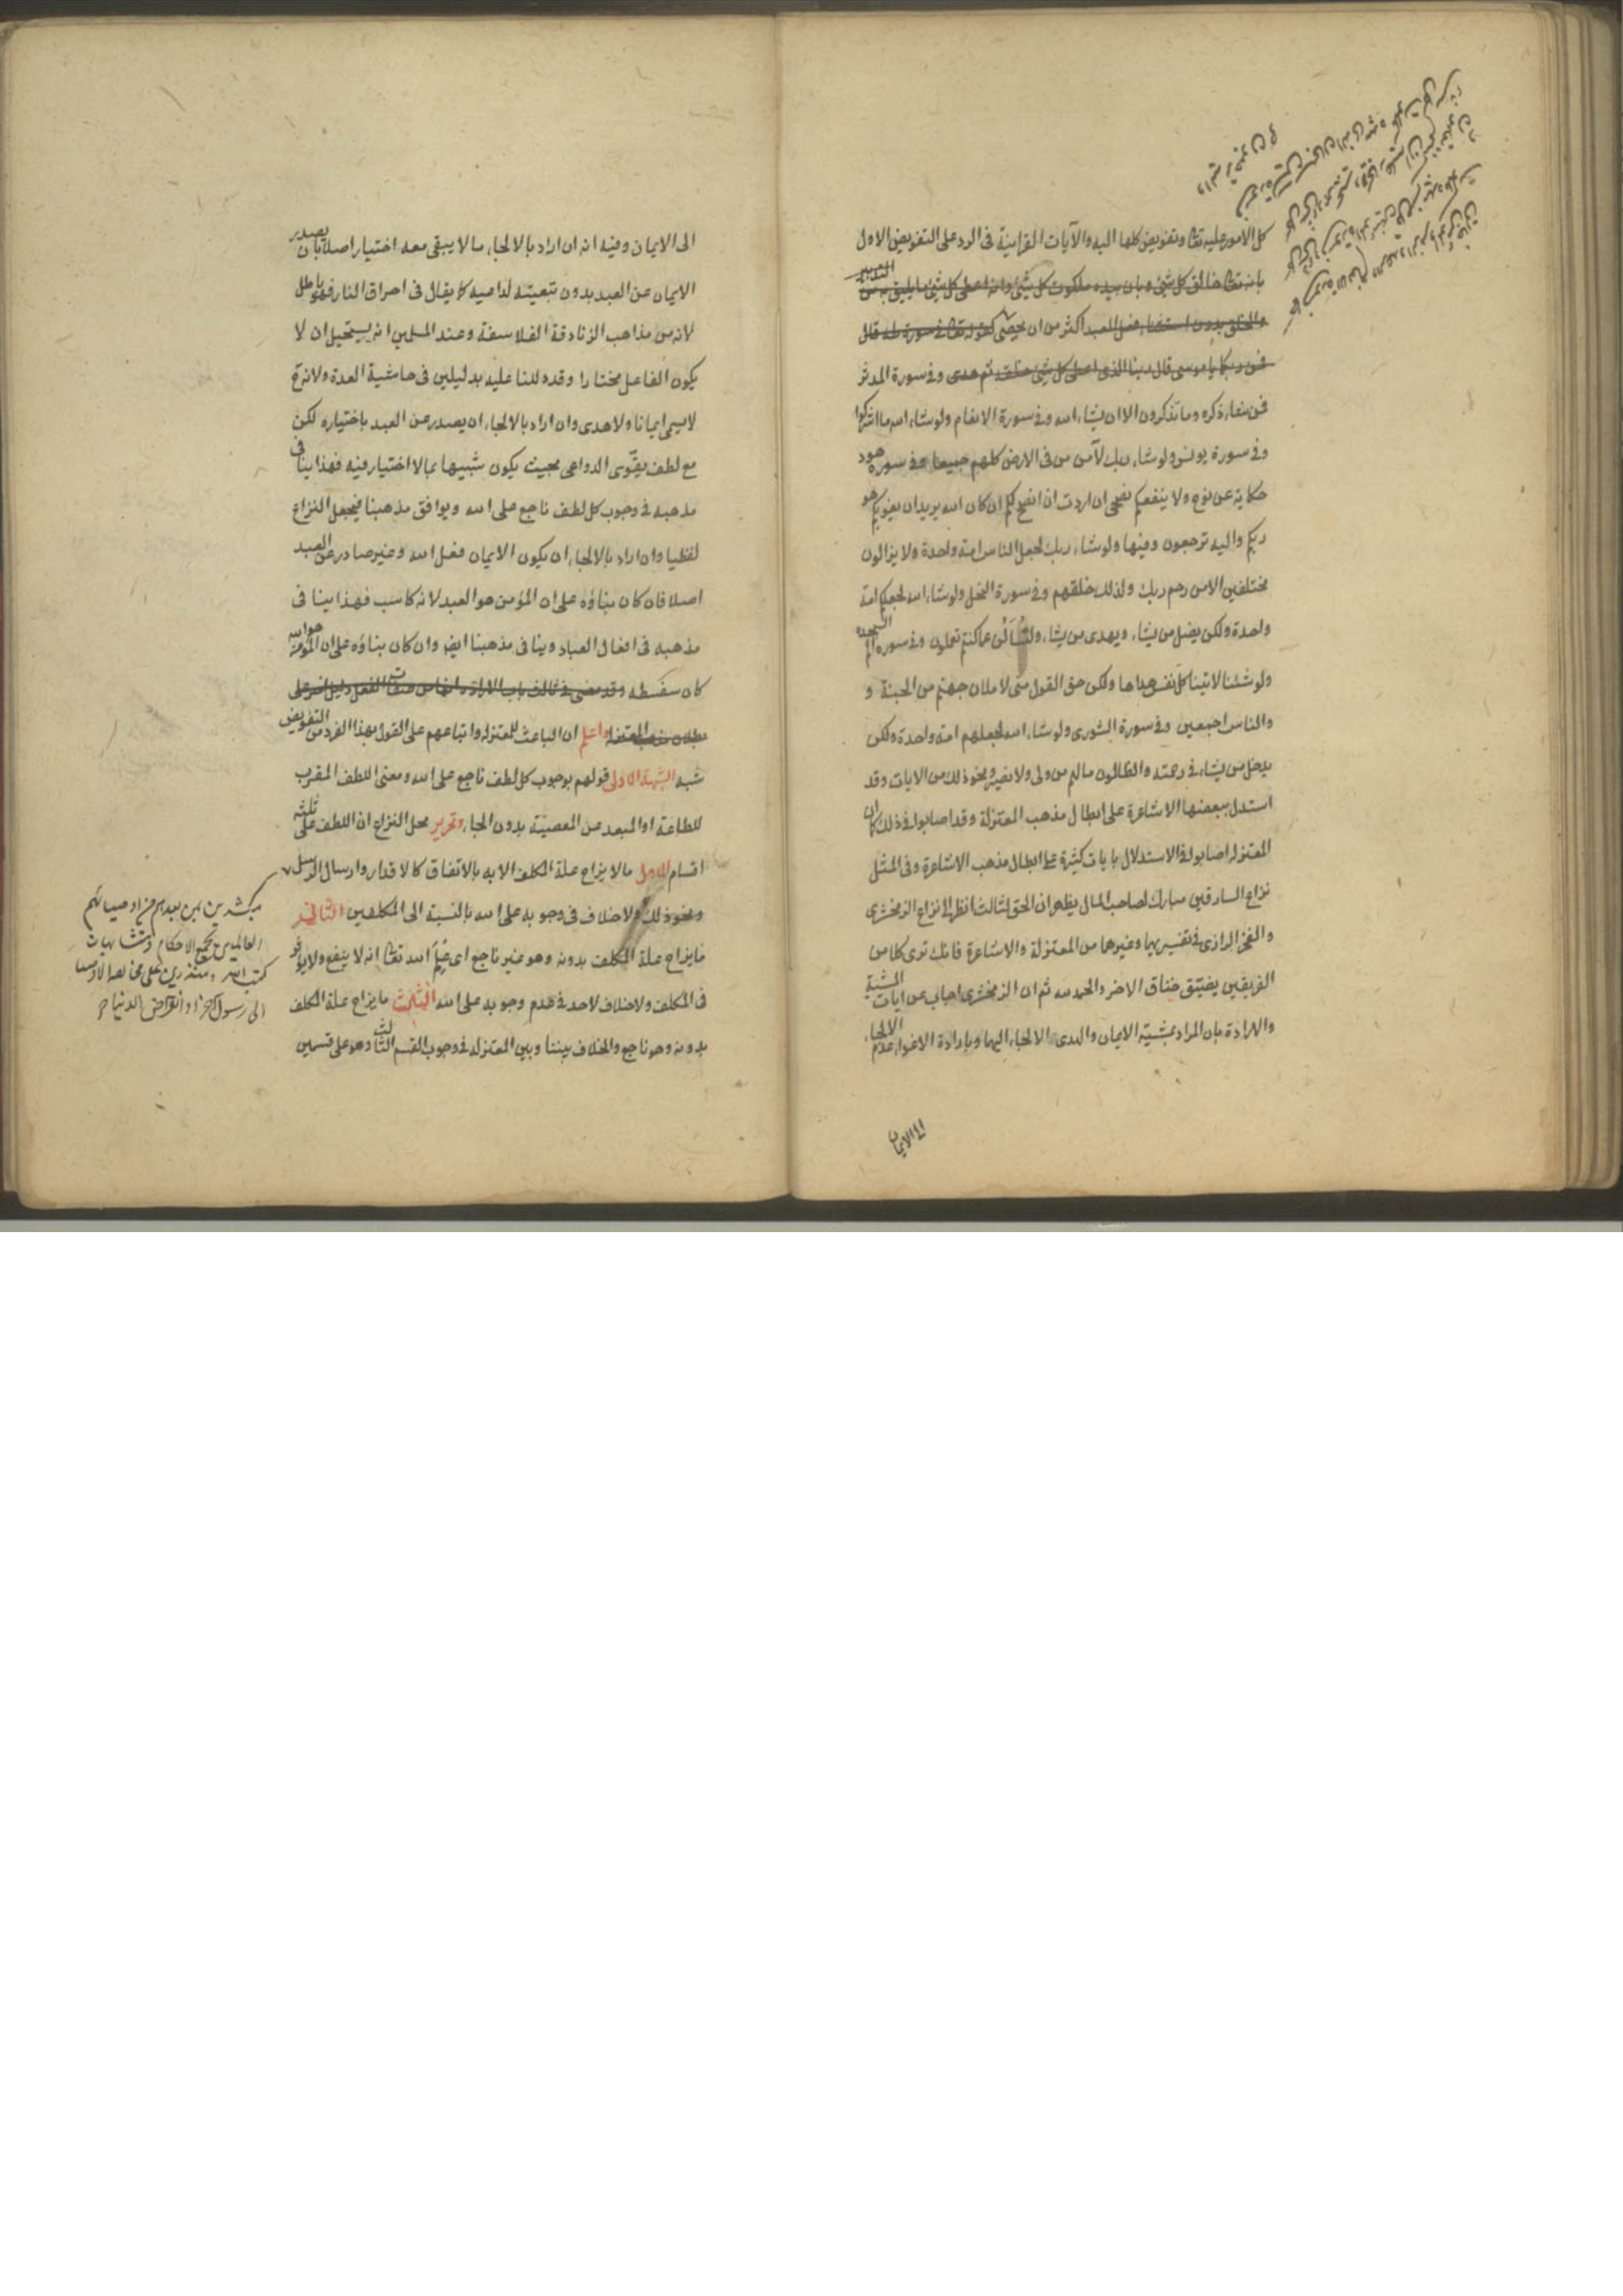 كل الامور عليه تعا وتفويض كلها اليه والآيات القرانية فى الرد على التفويض الاول
بانه تعا خالق كل شئ وبان بيده ملكوت كل شئ وانه اعطى كل شئ ما يليق به من التدبير
والخلق بدون استقصاء فعل العبد اكثر من ان يحصى كقوله تعا فى سورة طه قال
فمن ربكما يا موسى قال ربنا الذى اعطى كل شئ خلقه ثم هدى وفى سورة المدثر
فمن شاء ذكره وما تذكرون الا ان يشاء الله وفى سورة الانعام ولو شاء الله ما اشركوا
وفى سورة يونس ولو شاء ربك لآمن من فى الارض كلهم جميعا وفى سورة هود
حكاية عن نوح ولا ينفعكم نصحى ان اردت ان انصح لكم ان كان الله يريد ان يغويكم هو
ربكم واليه ترجعون وفيها ولو شاء ربك لجعل الناس امة واحدة ولا يزالون
مختلفين الا من رحم ربك ولذلك خلقهم وفى سورة النحل ولو شاء الله لجعلكم امة
واحدة ولكن يضل من يشاء ويهدى من يشاء ولتسألن عما كنتم تعملون وفى سورة الم السجدة
ولو شئنا لاتينا كل نفس هداها ولكن حق القول منى لاملان جهنم من الجنة و
والناس اجمعين وفى سورة الشورى ولو شاء الله لجعلهم امة واحدة ولكن
يدخل من يشاء فى رحمته والظالمون مالهم من ولى ولا نصير ونحو ذلك من الايات وقد
استدل ببعضها الاشاعرة على ابطال مذهب المعتزلة وقد اصابوا فى ذلك كما ان
المعتزلة اصابوا فى الاستدلال بايات كثيرة على ابطال مذهب الاشاعرة وفى المثل
نزاع السارقين مبارك لصاحب المال يظهر ان الحق لثالث انظر الى نزاع الزمخشرى
والفخر الرازى فى تفسيريهما وغيرهما من المعتزلة والاشاعرة فانك ترى كلا من
الفريقين يضيق خناق الاخر والحمد لله ثم ان الزمخشرى اجاب عن ايات المشية
والارادة بان المراد بمشية الايمان والهدى الالجاء اليهما وبارادة الاغواء عدم الالجاء
الى الايمان
الى الايمان وفيه انه ان اراد بالالجاء ما لا يبقى معه اختيار اصلا بان يصدر
الايمان عن العبد بدون تبعيته لداعيه كما يقال فى احراق النار فهو باطل
لانه من مذاهب الزنادقة الفلاسفة وعند المسلمين انه يستحيل ان لا
يكون الفاعل مختارا وقد دللنا عليه بدليلين فى حاشية العدة ولانه ح
لا يسمى ايمانا ولا هدى وان اراد بالالجاء ان يصدر عن العبد باختياره لكن
مع لطف يقوى الدواعى بحيث يكون شبيها بما لا اختيار فيه فهذا ينافى
مذهبه فى وجوب كل لطف ناجع على الله ويوافق مذهبنا فيجعل النزاع
لفظيا وان اراد بالالجاء ان يكون الايمان فعل الله وغير صادر عن العبد
اصلا فان كان بناؤه على ان المؤمن هو العبد لانه كاسب فهذا ينافى
مذهبه فى افعال العباد وينافى مذهبنا ايضا وان كان بناؤه على ان المؤمن هو الله
كان سفسطه وقد مضى فى ثالث باب الارادة انها من صفات الفعل دليل اخر على
بطلان مذهب المعتزلة واعلم ان الباعث للمعتزله واتباعهم على القول بهذا الفرد من التفويض
شبه الشبهة الاولى قولهم بوجوب كل لطف ناجع على الله ومعنى اللطف المقرب
للطاعة او المبعد عن المعصية بدون الجاء وتحرير محل النزاع ان اللطف على ثلثة
اقسام الاول ما لا يزاح علة المكلف الا به بالاتفاق كالاقدار وارسال الرسل
ونحو ذلك ولا خلاف فى وجوبه على الله بالنسبة الى المكلفين الثانى
ما يزاح علة المكلف بدونه وهو غير ناجع اى علم الله تعا انه لا ينفع ولا يؤثر
فى المكلف ولا خلاف لاحد فى عدم وجوبه على الله الثالث ما يزاح علة المكلف
بدونه وهو ناجع والخلاف بيننا وبين المعتزله فى وجوب القسم الثالث وهو على قسمين
مبشرين بمن بعدهم من اوصيائهم
العالمين بجميع الاحكام ومتشابهات
كتب الله ومنذرين على مخالفة الاوصياء
الى رسول اخر او انقراض الدنيا